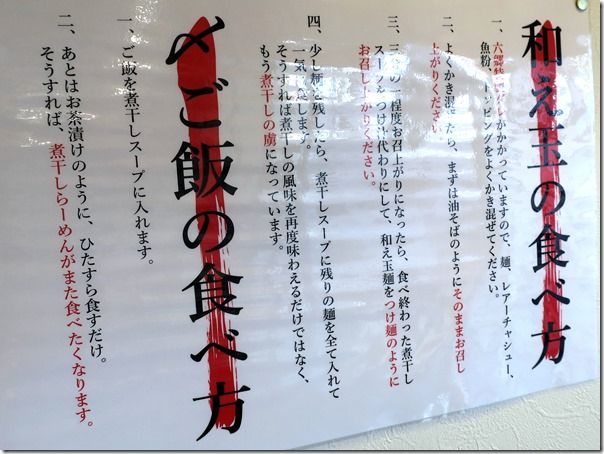 和え玉の食べ方
一、
がかかっていますので、麺、レアーチャシュー、
魚粉、トッピングをよくかき混ぜてください。
二、よくかき混ぜたら、まずは油そばのようにそのままお召し
上がりください
三、三分の一程度お召上がりになったら、食べ終わった煮干し
スープをつけ汁代わりにして、和え玉麺をつけ麺のように
お召し上がりください。
四、少し麺を残したら、煮干しスープに残りの麺を全て入れて
一気に
します。
そうすれば煮干しの風味を再度味わえるだけではなく、
もう煮干しの虜になっています。
〆ご飯の食べ方
一、ご飯を煮干しスープに入れます。
二、あとはお茶漬けのように、ひたすら食すだけ。
そうすれば、煮干しらーめんがまた食べたくなります。